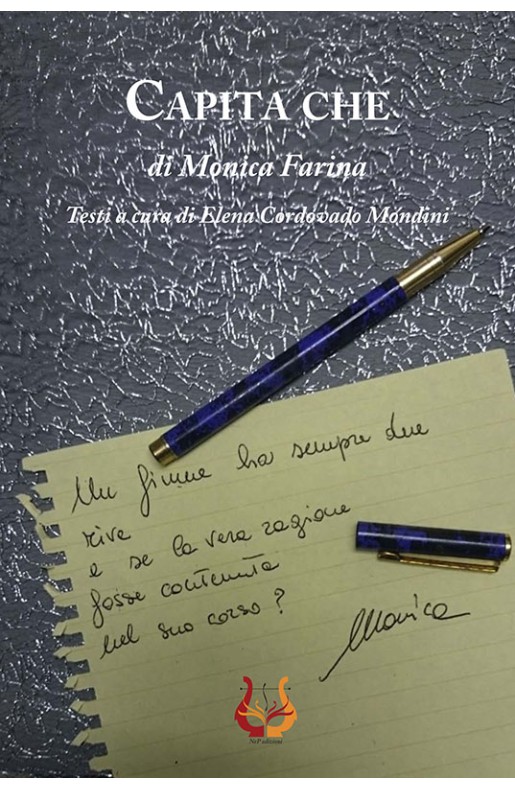 CAPITA CHE
di Monica Farina
Testi a cura di Elena Cordovado Mondini
Un fiume ha sempre due
rive
e se la vera ragione
fosse contenuta
nel suo corso?
Monica
NeP edizioni